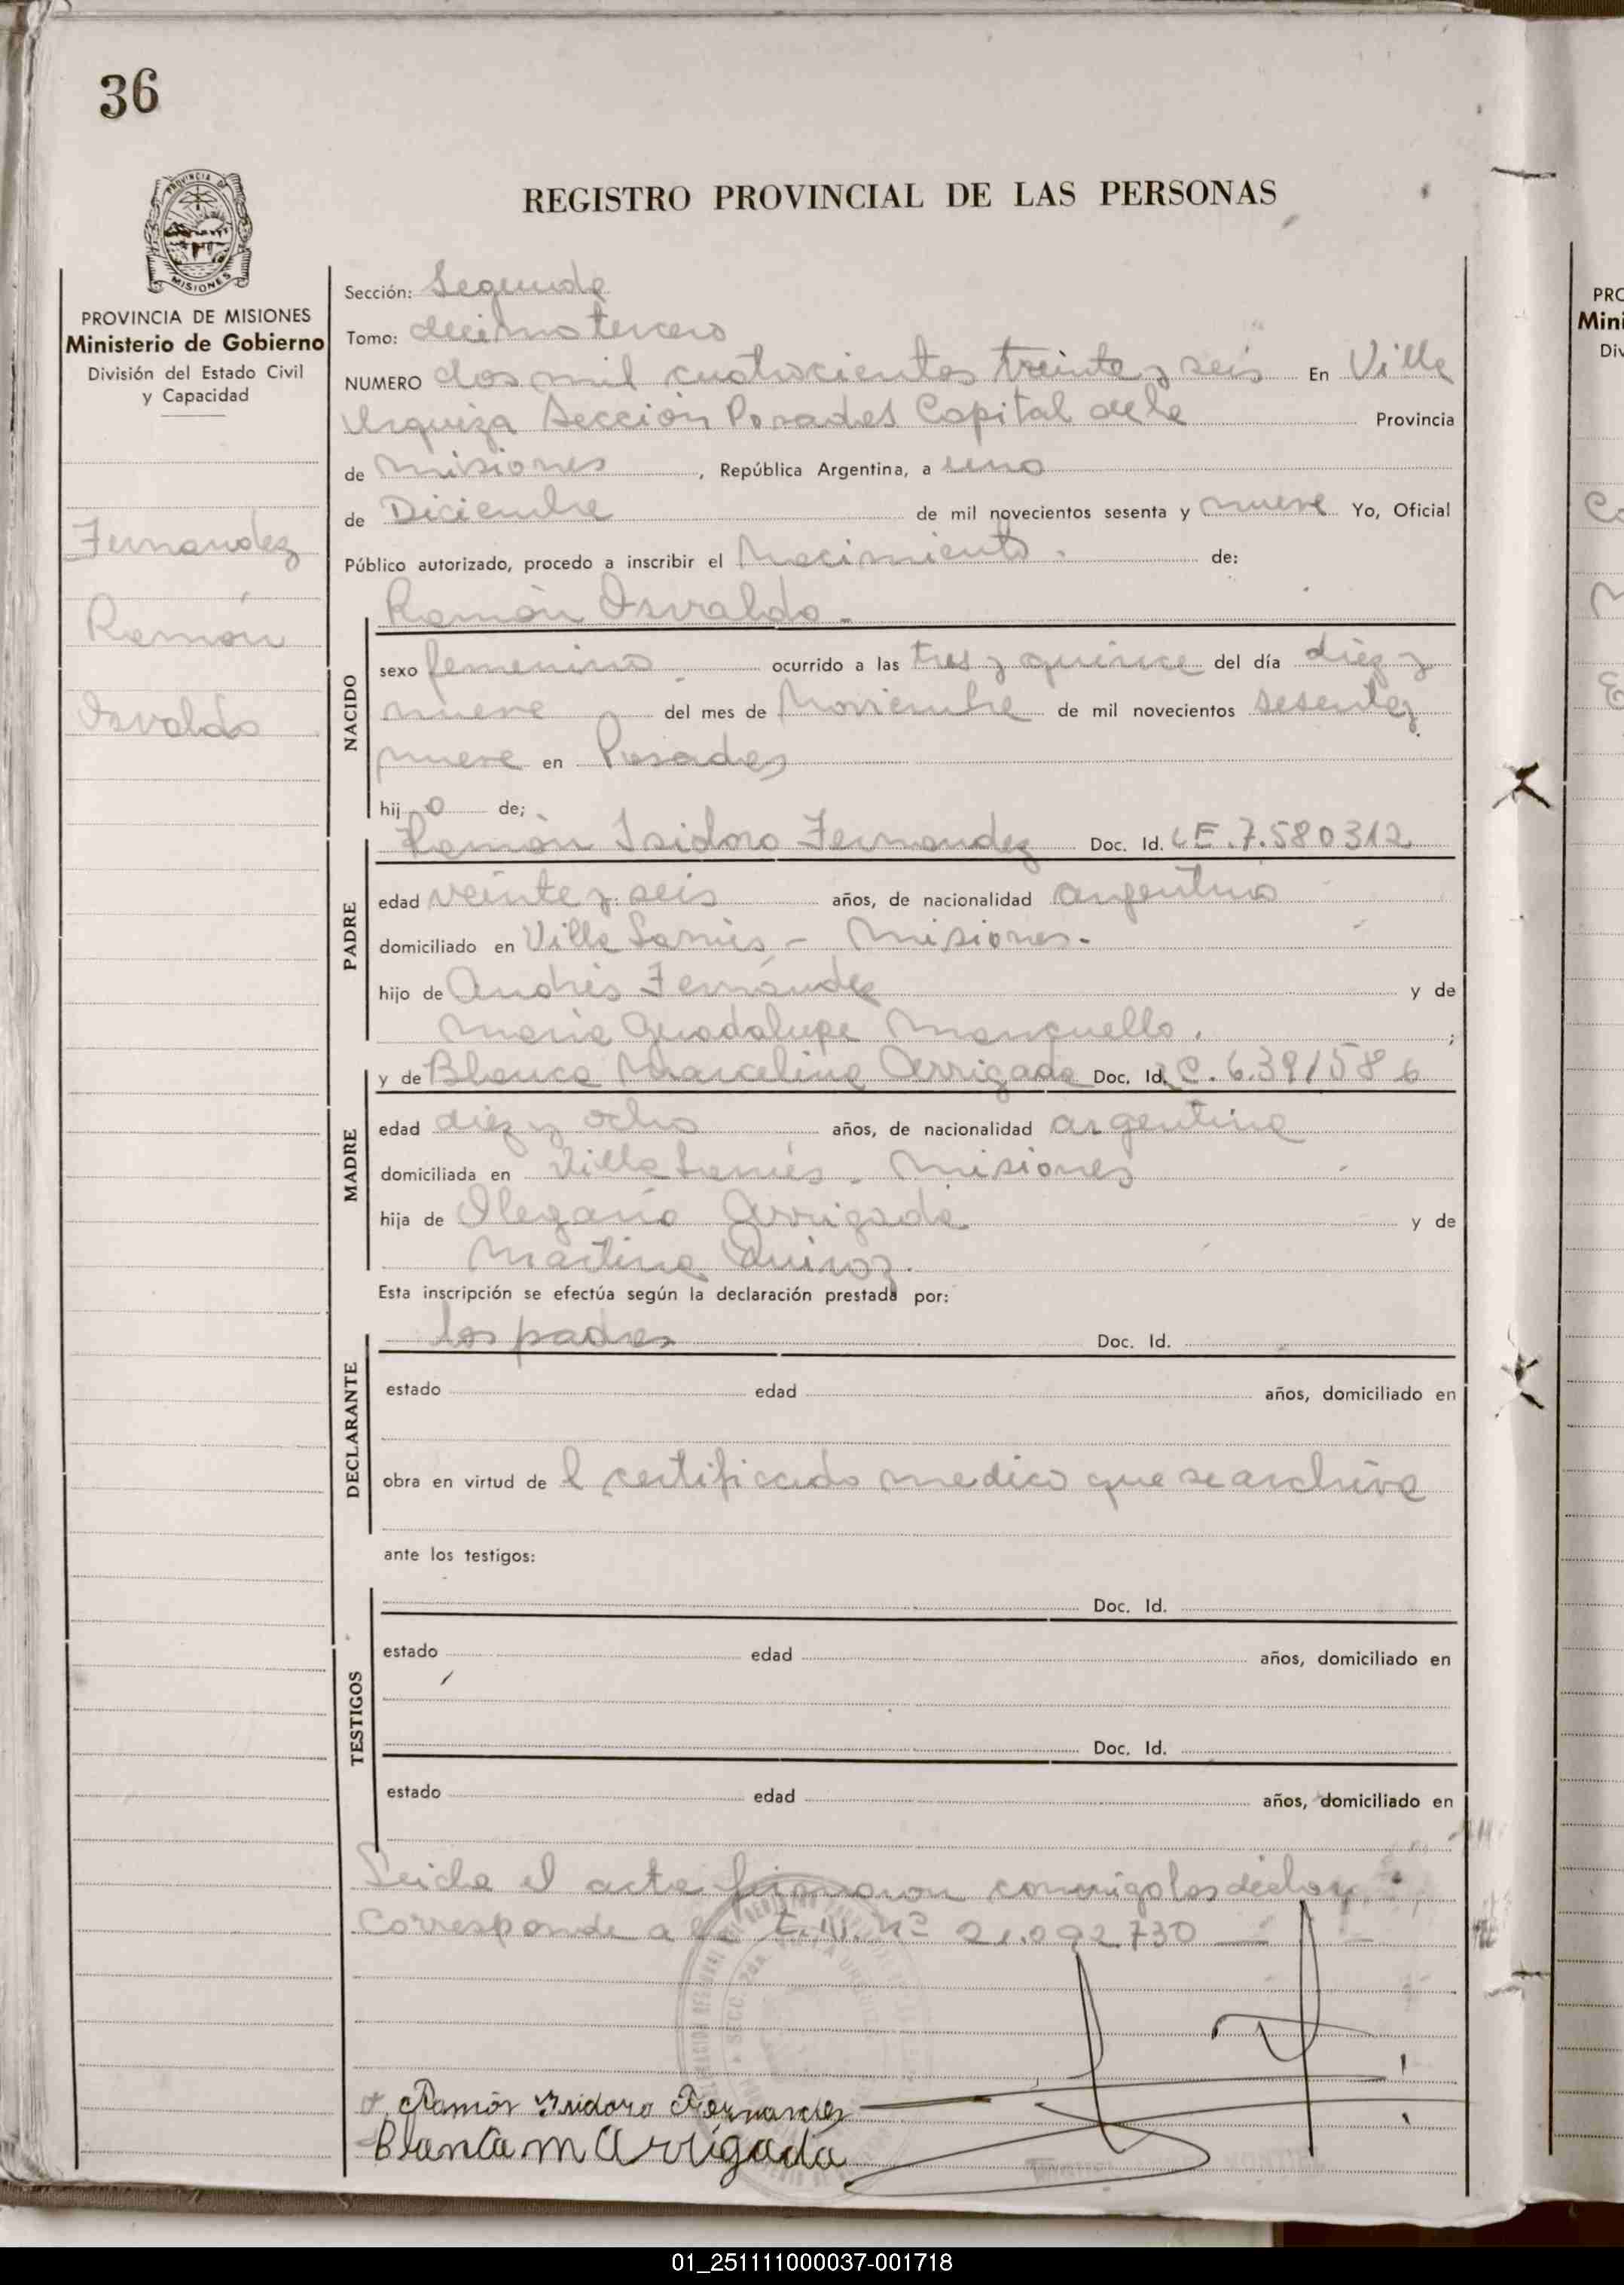 36
PROVINCIA DE
MISIONES
REGISTRO PROVINCIAL DE LAS PERSONAS
PROVINCIA DE MISIONES
Ministerio de Gobierno
División del Estado Civil
y Capacidad
Fernandez
Ramón
Osvaldo
Sección: Segunda
Tomo: decimo tercero
NUMERO dos mil cuatrocientos treinta y seis En Villa
Urquiza Sección Posadas Capital de la Provincia
de Misiones, República Argentina, a uno
de Diciembre de mil novecientos sesenta y nueve Yo, Oficial
Público autorizado, procedo a inscribir el Nacimiento. de:
Ramón Osvaldo.
NACIDO
sexo femenino ocurrido a las tres y quince del día diez y
nueve del mes de Noviembre de mil novecientos sesenta y
nueve en Posadas
hij o de;
Ramón Isidoro Fernandez Doc. Id. LE. 7.580312
PADRE
edad veinte y seis años, de nacionalidad argentino
domiciliado en Villa Lanús - Misiones.
hijo de Andrés Fernández y de
Maria Guadalupe Mancuello. ;
y de Blanca Marcelina Arrigada Doc. Id. LC. 6.391586
MADRE
edad diez y ocho años, de nacionalidad argentina
domiciliada en Villa Lanús - Misiones
hija de Olegario Arrigada y de
Martina Quiroz.
Esta inscripción se efectúa según la declaración prestada por:
los padres Doc. Id.
DECLARANTE
estado edad años, domiciliado en
obra en virtud de l certificado medico que se archiva
ante los testigos:
Doc. Id.
TESTIGOS
estado edad años, domiciliado en
Doc. Id.
estado edad años, domiciliado en
Leida el acta firmaron conmigo los declar.
Corresponde a la Nº 21.092.730
Ramón Isidoro Fernandez
Blanca M Arrigada
PRO
Mini
Div
01_251111000037-001718